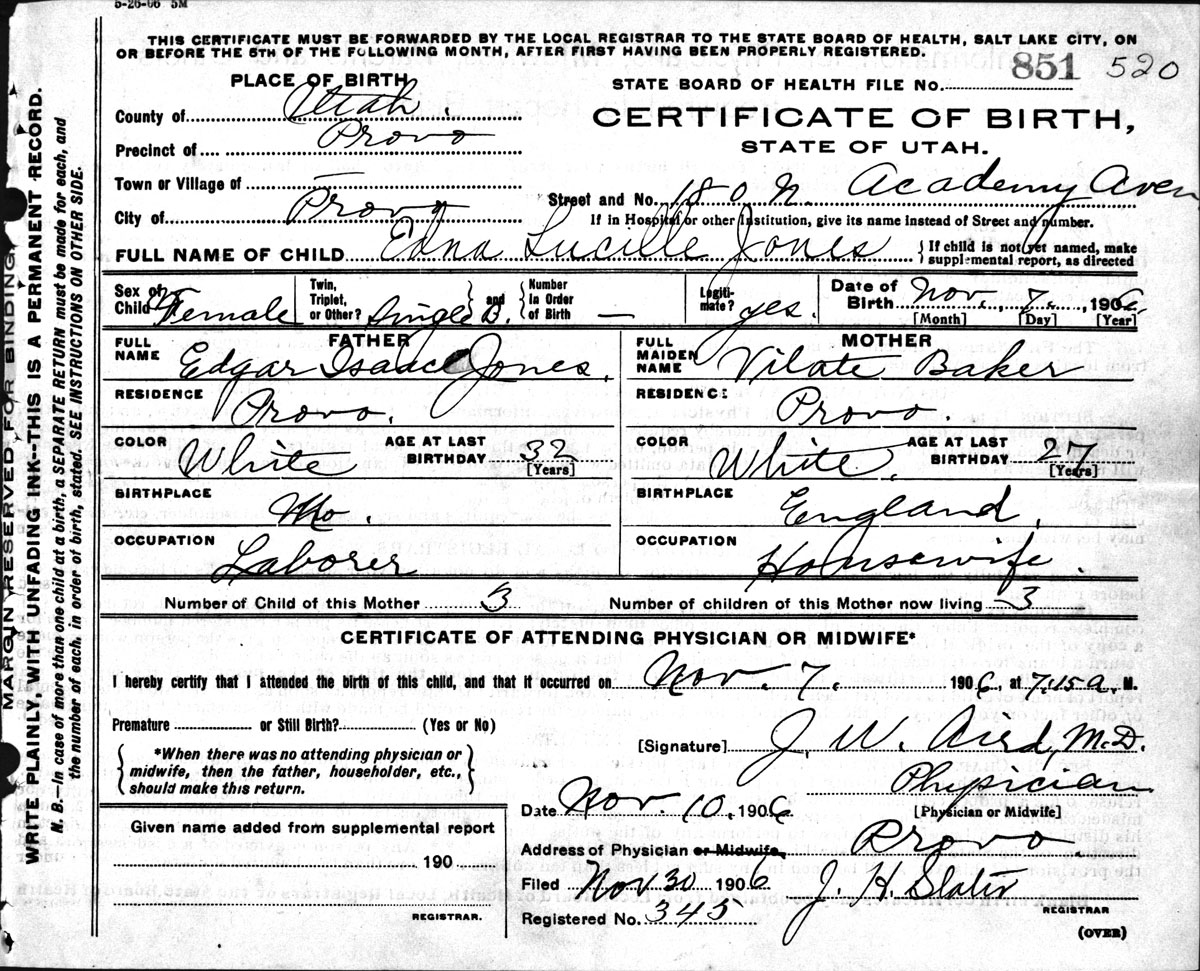 5-26-06 5M
THIS CERTIFICATE MUST BE FORWARDED BY THE LOCAL REGISTRAR TO THE STATE BOARD OF HEALTH, SALT LAKE CITY, ON
OR BEFORE THE 5TH OF THE FOLLOWING MONTH, AFTER FIRST HAVING BEEN PROPERLY REGISTERED.
PLACE OF BIRTH
County of Utah.
Precinct of Provo
Town or Village of —
City of Provo
STATE BOARD OF HEALTH FILE No. 851 520
CERTIFICATE OF BIRTH,
STATE OF UTAH.
Street and No. 180 N. Academy Aven
If in Hospital or other Institution, give its name instead of Street and number.
FULL NAME OF CHILD Edna Lucille Jones { If child is not yet named, make
supplemental report, as directed
Sex of Child Female
Twin, Triplet, or Other? Single B. } and { Number in Order of Birth —
Legitimate? yes.
Date of Birth Nov. 7, 1906
[Month] [Day] [Year]
FATHER
FULL NAME Edgar Isaac Jones.
RESIDENCE Provo.
COLOR White AGE AT LAST BIRTHDAY 32
[Years]
BIRTHPLACE Mo.
OCCUPATION Laborer
MOTHER
FULL MAIDEN NAME Vilate Baker
RESIDENCE Provo.
COLOR White. AGE AT LAST BIRTHDAY 27
[Years]
BIRTHPLACE England.
OCCUPATION Housewife.
Number of Child of this Mother 3 Number of children of this Mother now living 3
CERTIFICATE OF ATTENDING PHYSICIAN OR MIDWIFE*
I hereby certify that I attended the birth of this child, and that it occurred on Nov. 7. 1906, at 7.15 a. M.
Premature or Still Birth? (Yes or No)
{ *When there was no attending physician or
midwife, then the father, householder, etc.,
should make this return. }
[Signature] J. W. Aird, M.D.
Physician
[Physician or Midwife]
Date Nov. 10, 1906
Address of Physician or Midwife, Provo
Filed Nov 30 1906 J. H. Slater
REGISTRAR
Registered No. 345
(OVER)
Given name added from supplemental report
190
REGISTRAR.
MARGIN RESERVED FOR BINDING.
WRITE PLAINLY, WITH UNFADING INK--THIS IS A PERMANENT RECORD.
N. B.—In case of more than one child at a birth, a SEPARATE RETURN must be made for each, and
the number of each, in order of birth, stated. SEE INSTRUCTIONS ON OTHER SIDE.